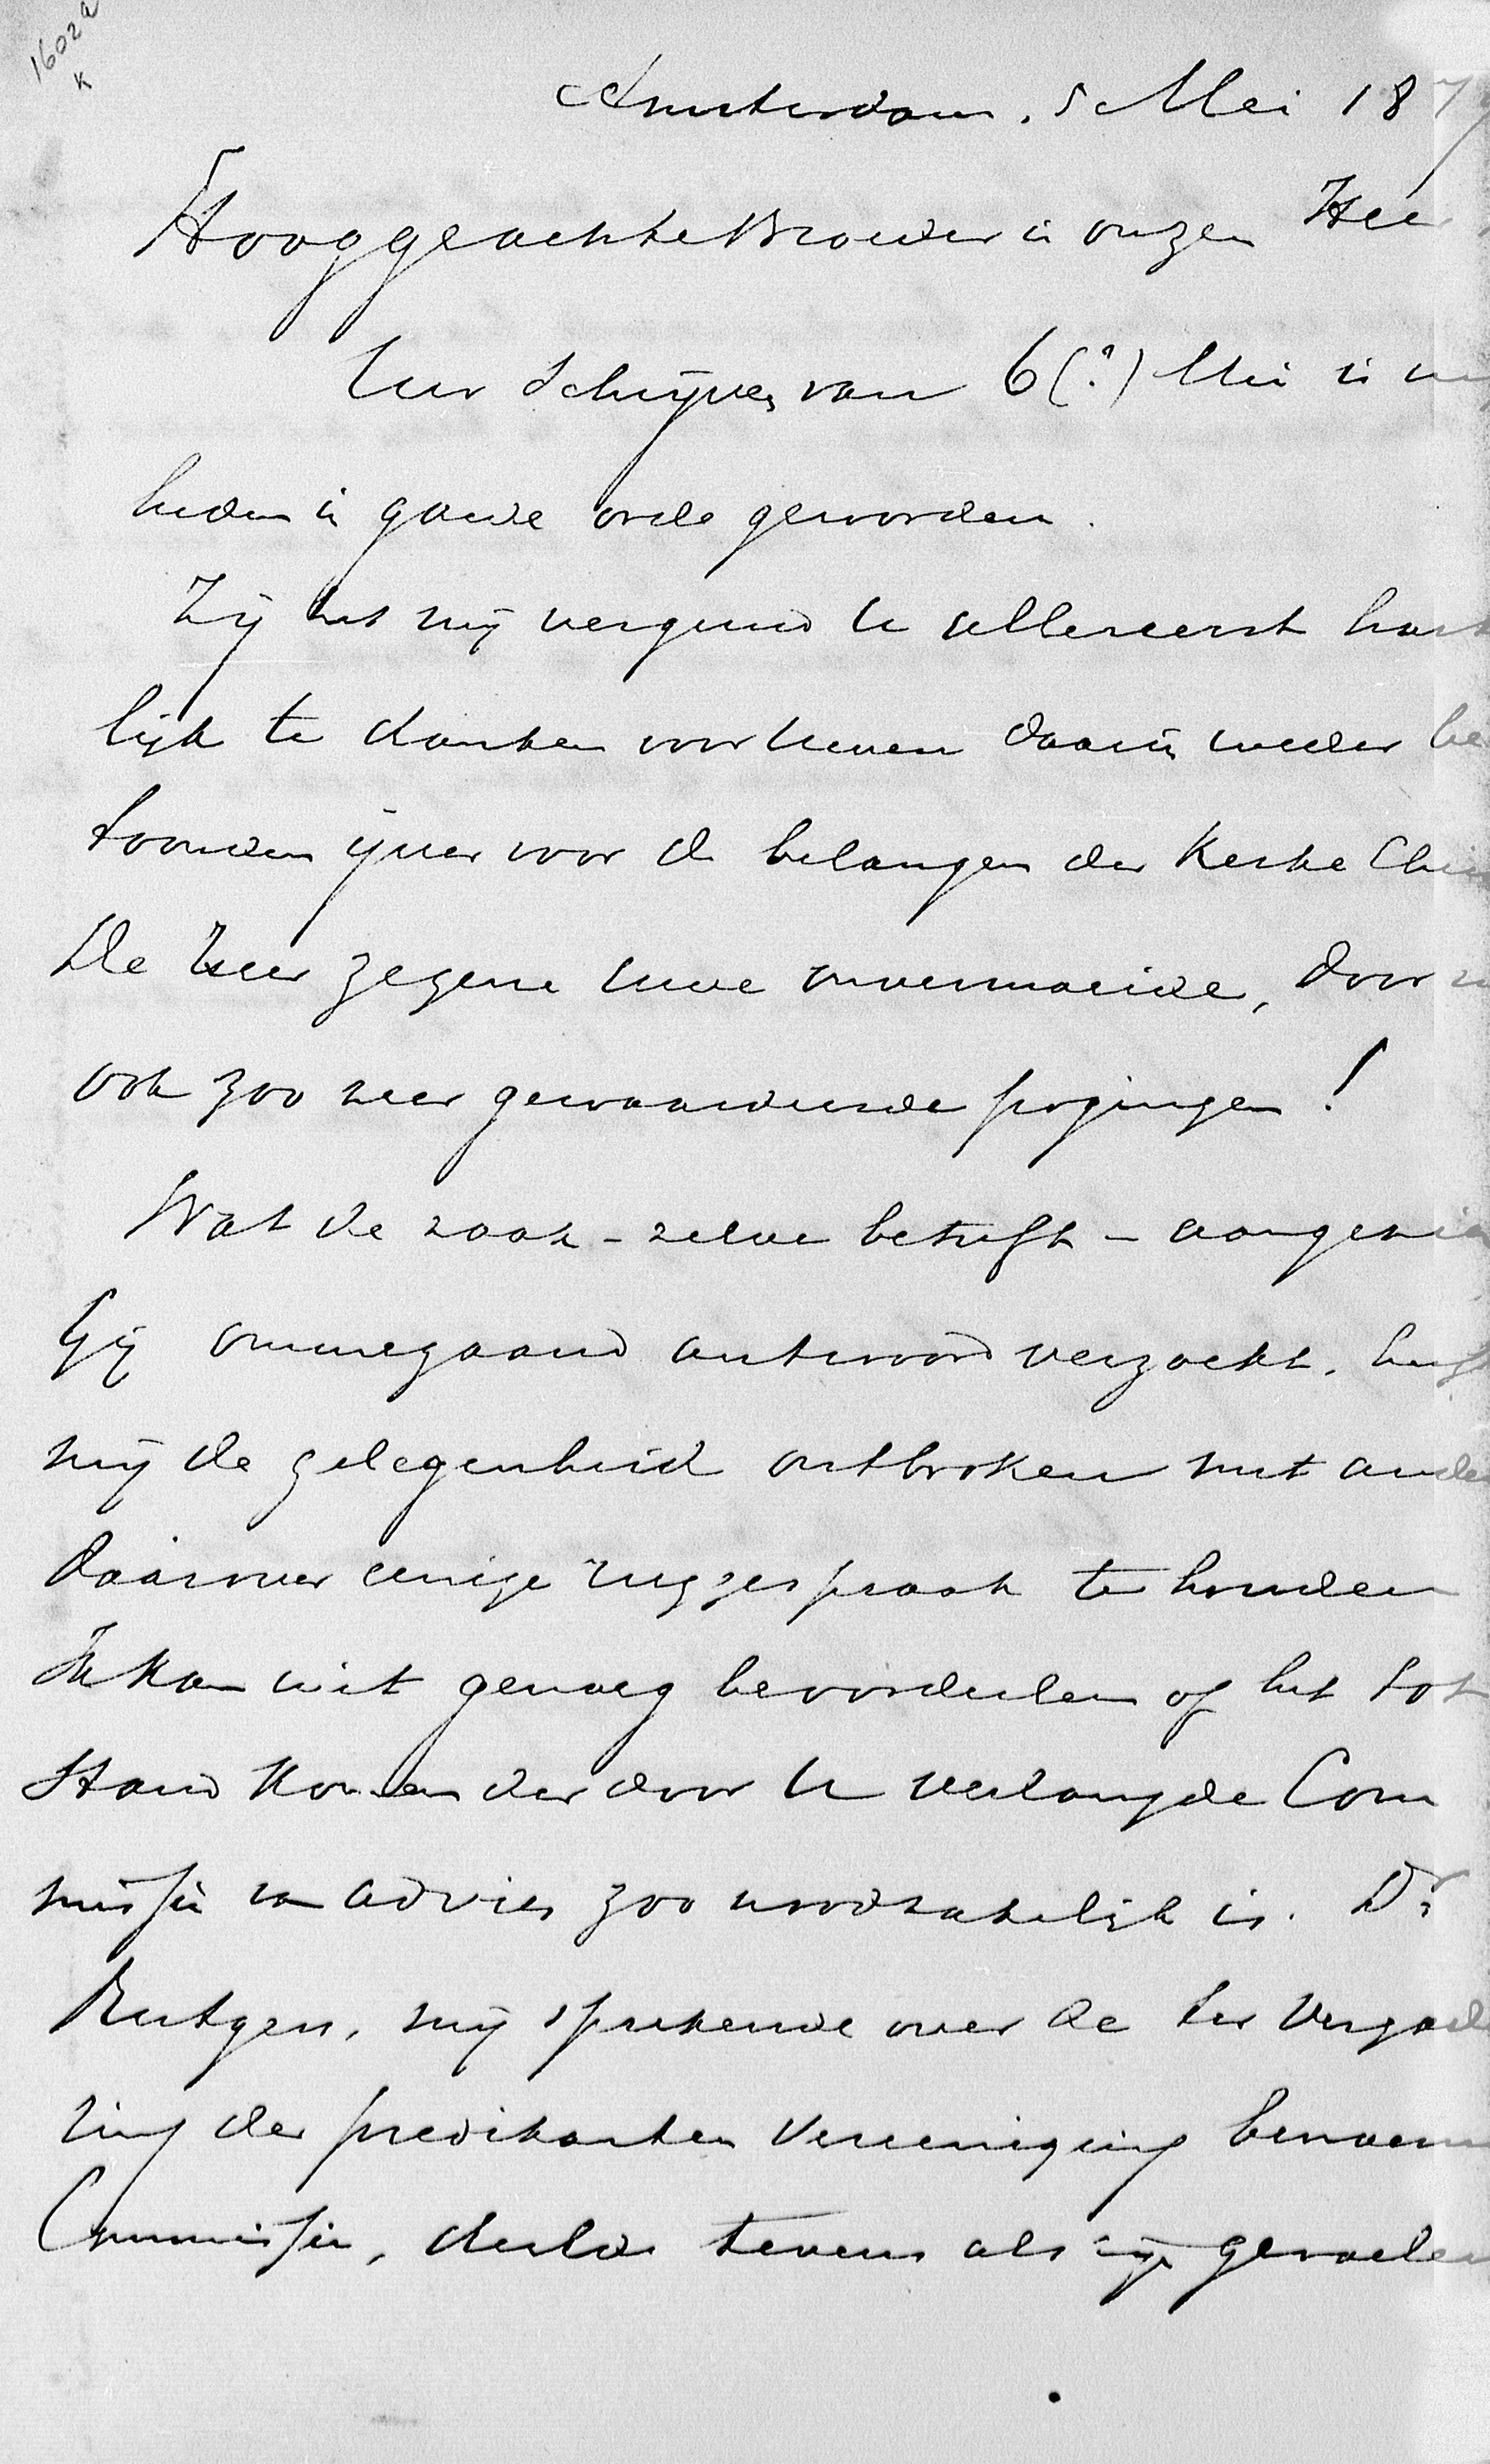 1602a
K
Amsterdam, 5 Mei 187
Hooggeachte Broeder in onzen Heer
Uw schrijven van 6(?) Mei is mij
heden in goede orde geworden.
Zij het mij vergund U allereerst harte
lijk te danken voor Uwen daarin weder be
toonden ijver voor de belangen der Kerke Chris
De Heer zegene Uwe onvermoeide, door
ook zoo zeer gewaardeerde pogingen!
Wat de zaak-zelve betreft - aangezien
Gij ommegaand antwoord verzoekt, heeft
mij de gelegenheid ontbroken met ander
daarover eenige ruggespraak te houden
Ik kan niet genoeg beoordeelen of het tot
stand komen der door U verlangde Com
missie van advies zoo noodzakelijk is. Dr
Rutgers, mij sprekende over de ter Vergade
ring der predikanten Vereeniging benoem
Commissie, deelde tevens als zijn gevoelen